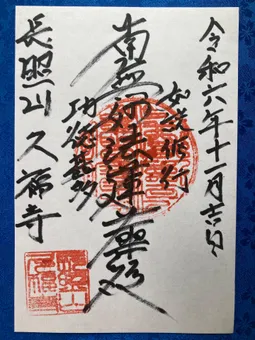 令和六年十一月吉日
如説修行
南無妙法蓮華経
功徳甚多
長照山 久福寺